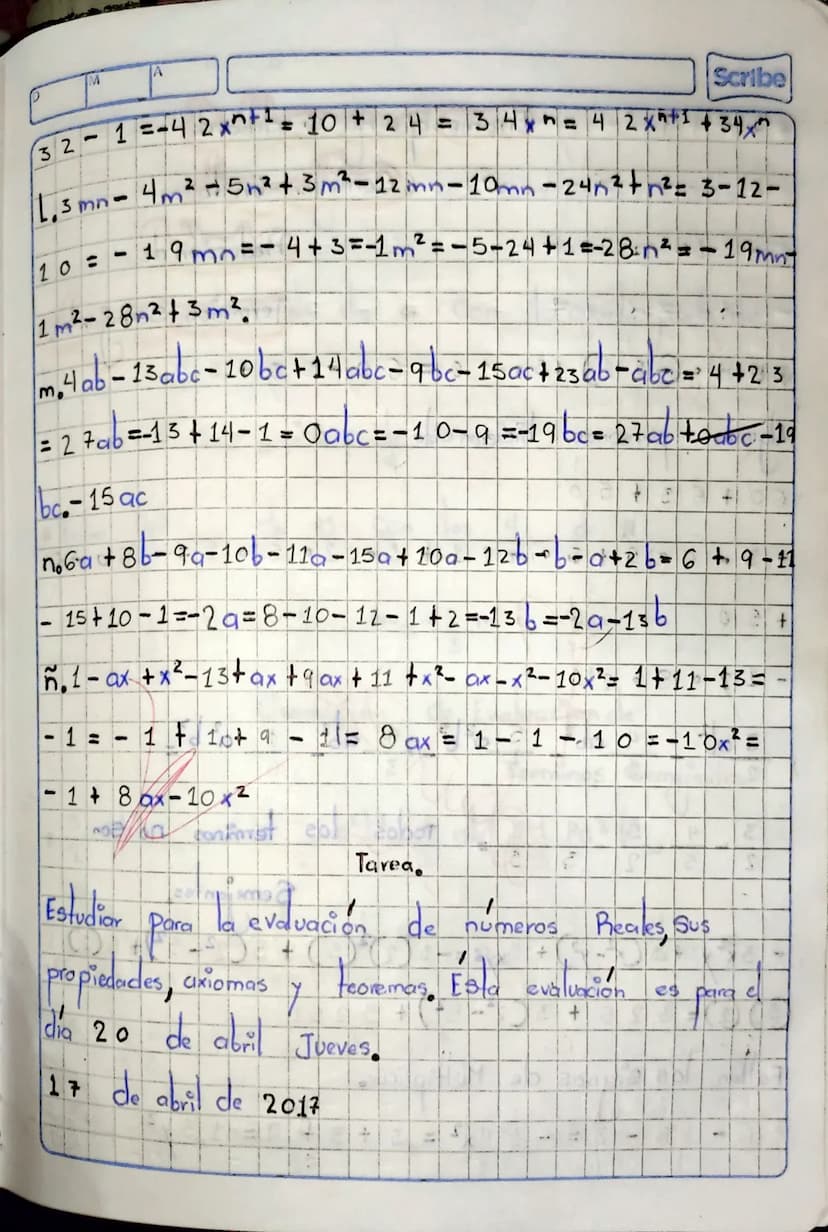 D M A Scribe
32-1=-42xⁿ⁺¹=10+24=34xⁿ=42xⁿ⁺¹+34xⁿ
L.3mn-4m²-5n²+3m²-12mn-10mn-24n²+n²=3-12-
10=-19mn=-4+3=-1m²=-5-24+1=-28n²=-19mn-
1m²-28n²+3m².
m.4ab-13abc-10bc+14abc-9bc-15ac+23ab-abc=4+23
=27ab=-13+14-1=0abc=-10-9=-19bc=27ab+0abc-19
bc.-15ac
n.6a+8b-9a-10b-11a-15a+10a-12b-b-a+2b=6+9-11
-15+10-1=-2a=8-10-12-1+2=-13b=-2a-13b
ñ.1-ax+x²-13+ax+9ax+11+x²-ax-x²-10x²=1+11-13=-
-1=-1+1+9-1=8ax=1-1-10=-10x²=
-1+8ax-10x²
Tarea.
Estudiar para la evaluación de números Reales, sus
propiedades, axiomas y teoremas. Ésta evaluación es para el
día 20 de abril Jueves.
17 de abril de 2017